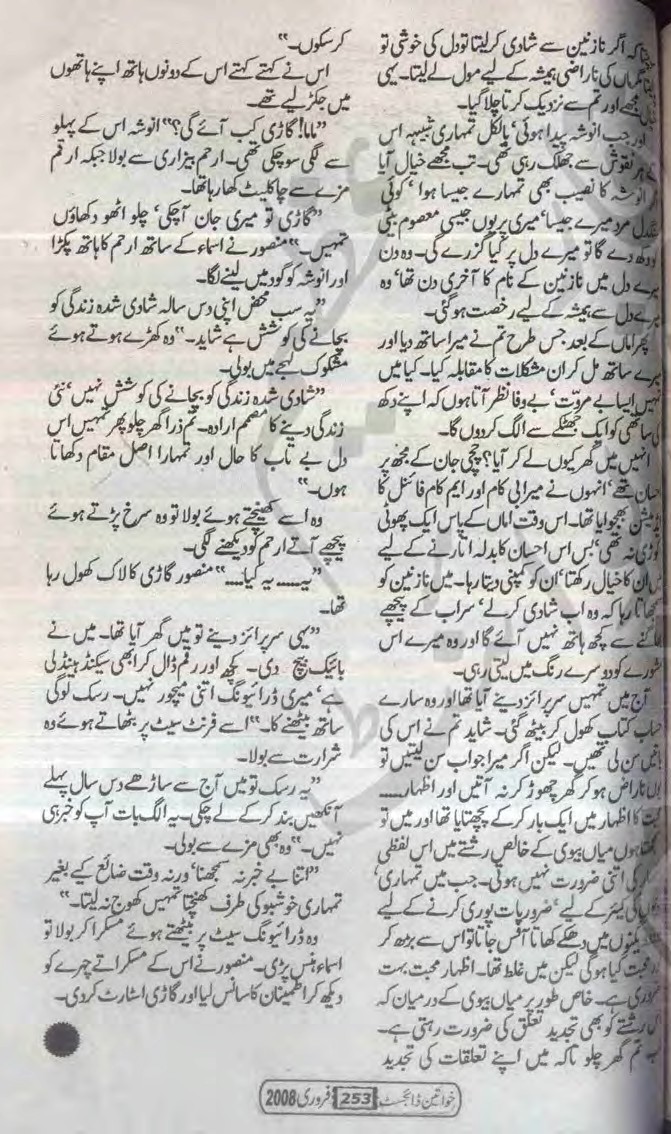 کہ اگر نازنین سے شادی کر لیتا تو دل کی خوشی تو
اماں کی ناراضی ہمیشہ کے لیے مول لے لیتا۔ یہی
مجھے اور تم سے نزدیک کرتا چلا گیا۔
اور جب انوشہ پیدا ہوئی، بالکل تمہاری شبیہہ اس
نقوش سے جھلک رہی تھی۔ تب مجھے خیال آیا
انوشہ کا نصیب بھی تمہارے جیسا ہوا، کوئی
مرد میرے جیسا، میری پریوں جیسی معصوم بیٹی
دکھ دے گا تو میرے دل پر کیا گزرے گی۔ وہ دن
میرے دل میں نازنین کے نام کا آخری دن تھا، وہ
دل سے ہمیشہ کے لیے رخصت ہو گئی۔
پھر اماں کے بعد جس طرح تم نے میرا ساتھ دیا اور
میرے ساتھ مل کر ان مشکلات کا مقابلہ کیا۔ کیا میں
تمہیں ایسا بے مروت، بے وفا نظر آتا ہوں کہ اپنے دکھ
کی ساتھی کو ایک جھٹکے سے الگ کردوں گا۔
انہیں میں گھر کیوں لے کر آیا؟ چچی جان کے مجھ پر
احسان تھے، انہوں نے میرا بی کام اور ایم کام فائنل کا
ایڈمیشن بھجوایا تھا۔ اس وقت اماں کے پاس ایک پھوٹی
کوڑی نہ تھی، بس اس احسان کا بدلہ اتارنے کے لیے
ان کا خیال رکھتا، ان کو کمپنی دیتا رہا۔ میں نازنین کو
سمجھاتا رہا کہ وہ اب شادی کر لے، سراب کے پیچھے
بھاگنے سے کچھ ہاتھ نہیں آئے گا اور وہ میرے اس
مشورے کو دوسرے رنگ میں لیتی رہی۔
آج میں تمہیں سرپرائز دینے آیا تھا اور وہ سارے
حساب کتاب کھول کر بیٹھ گئی۔ شاید تم نے اس کی
باتیں سن لی تھیں۔ لیکن اگر میرا جواب سن لیتیں تو
یوں ناراض ہو کر گھر چھوڑ کر نہ آتیں اور اظہار.....
محبت کا اظہار میں ایک بار کر کے پچھتایا تھا اور میں تو
سمجھتا ہوں میاں بیوی کے خالص رشتے میں اس لفظی
اظہار کی اتنی ضرورت نہیں ہوتی۔ جب میں تمہاری،
کی کیئر کے لیے، ضروریات پوری کرنے کے لیے
میں دھکے کھاتا آفس جاتا تو اس سے بڑھ کر
محبت کیا ہوگی لیکن میں غلط تھا۔ اظہار محبت بہت
ضروری ہے۔ خاص طور پر میاں بیوی کے درمیان کہ
اس رشتے کو بھی تجدید تعلق کی ضرورت رہتی ہے۔
تم گھر چلو تاکہ میں اپنے تعلقات کی تجدید
کر سکوں۔"
اس نے کہتے کہتے اس کے دونوں ہاتھ اپنے ہاتھوں
میں جکڑ لیے تھے۔
"ماما! گاڑی کب آئے گی؟" انوشہ اس کے پہلو
سے لگی سو چکی تھی۔ ارحم بیزاری سے بولا جبکہ ارقم
مزے سے چاکلیٹ کھا رہا تھا۔
"گاڑی تو میری جان آچکی، چلو اٹھو دکھاؤں
تمہیں۔" منصور نے اسماء کے ساتھ ارحم کا ہاتھ پکڑا
اور انوشہ کو گود میں لینے لگا۔
"یہ سب محض اپنی دس سالہ شادی شدہ زندگی کو
بچانے کی کوشش ہے شاید۔" وہ کھڑے ہوتے ہوئے
مشکوک لہجے میں بولی۔
"شادی شدہ زندگی کو بچانے کی کوشش نہیں، نئی
زندگی دینے کا مصمم ارادہ۔ تم ذرا گھر چلو پھر تمہیں اس
دل بے تاب کا حال اور تمہارا اصل مقام دکھاتا
ہوں۔"
وہ اسے کھینچتے ہوئے بولا تو وہ سرخ پڑتے ہوئے
پیچھے آتے ارحم کو دیکھنے لگی۔
"یہ..... یہ کیا....." منصور گاڑی کا لاک کھول رہا
تھا۔
"یہی سرپرائز دینے تو میں گھر آیا تھا۔ میں نے
بائیک بیچ دی۔ کچھ اور رقم ڈال کر ابھی سیکنڈ ہینڈ لی
ہے، میری ڈرائیونگ اتنی میچور نہیں۔ رسک لوگی
ساتھ بیٹھنے کا۔" اسے فرنٹ سیٹ پر بٹھاتے ہوئے وہ
شرارت سے بولا۔
"یہ رسک تو میں آج سے ساڑھے دس سال پہلے
آنکھیں بند کر کے لے چکی۔ یہ الگ بات آپ کو خبر ہی
نہیں۔" وہ بھی مزے سے بولی۔
"اتنا بے خبر نہ سمجھنا، ورنہ وقت ضائع کیے بغیر
تمہاری خوشبو کی طرف کھنچتا تمہیں کھوج نہ لیتا۔"
وہ ڈرائیونگ سیٹ پر بیٹھتے ہوئے مسکرا کر بولا تو
اسماء ہنس پڑی۔ منصور نے اس کے مسکراتے چہرے کو
دیکھ کر اطمینان کا سانس لیا اور گاڑی اسٹارٹ کر دی۔
خواتین ڈائجسٹ 253 فروری 2008